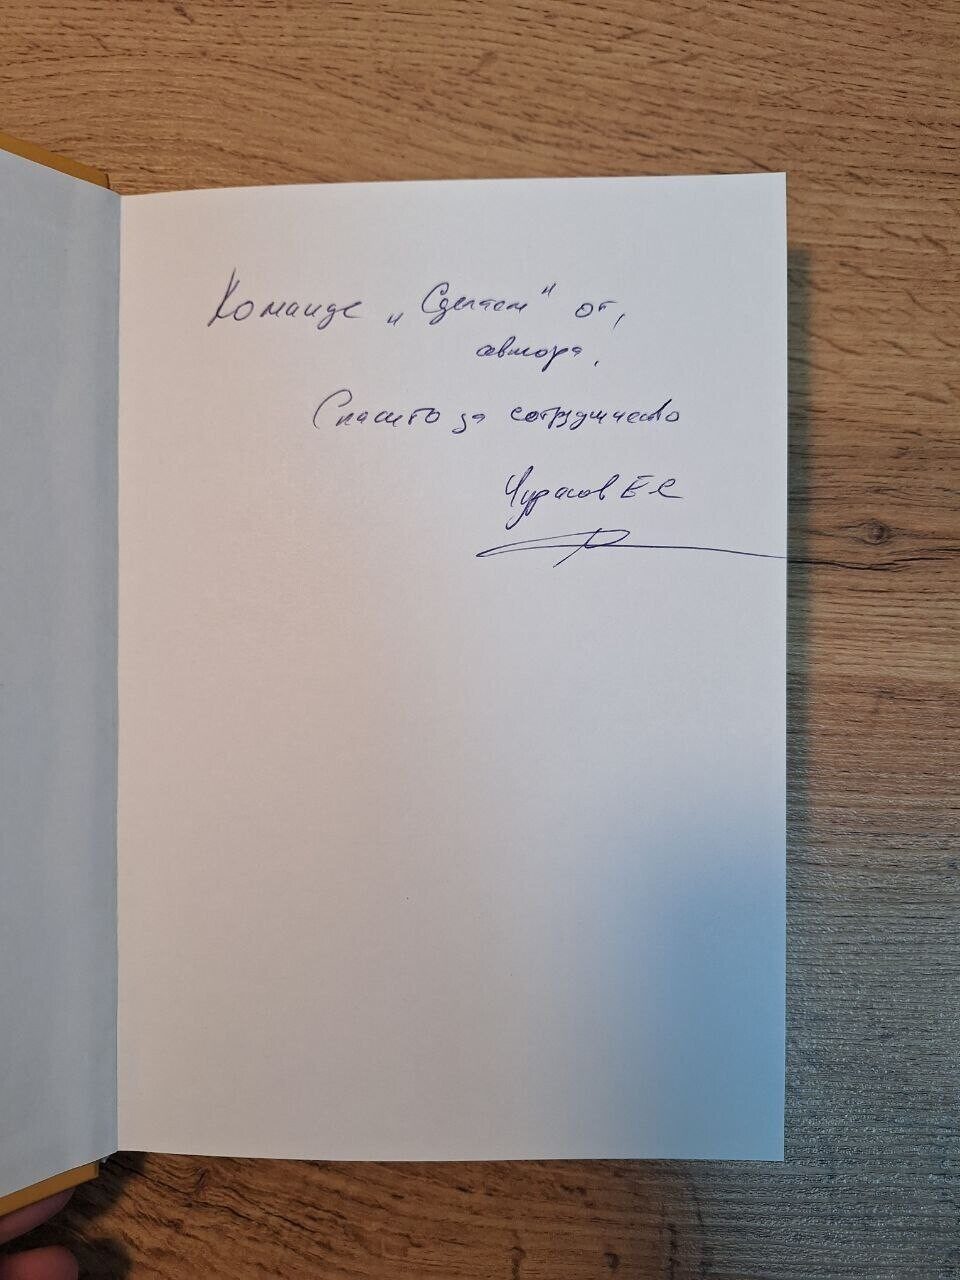 Команде „Сделаем" от,
автора.
Спасибо за сотрудничество
Чурасов Е С